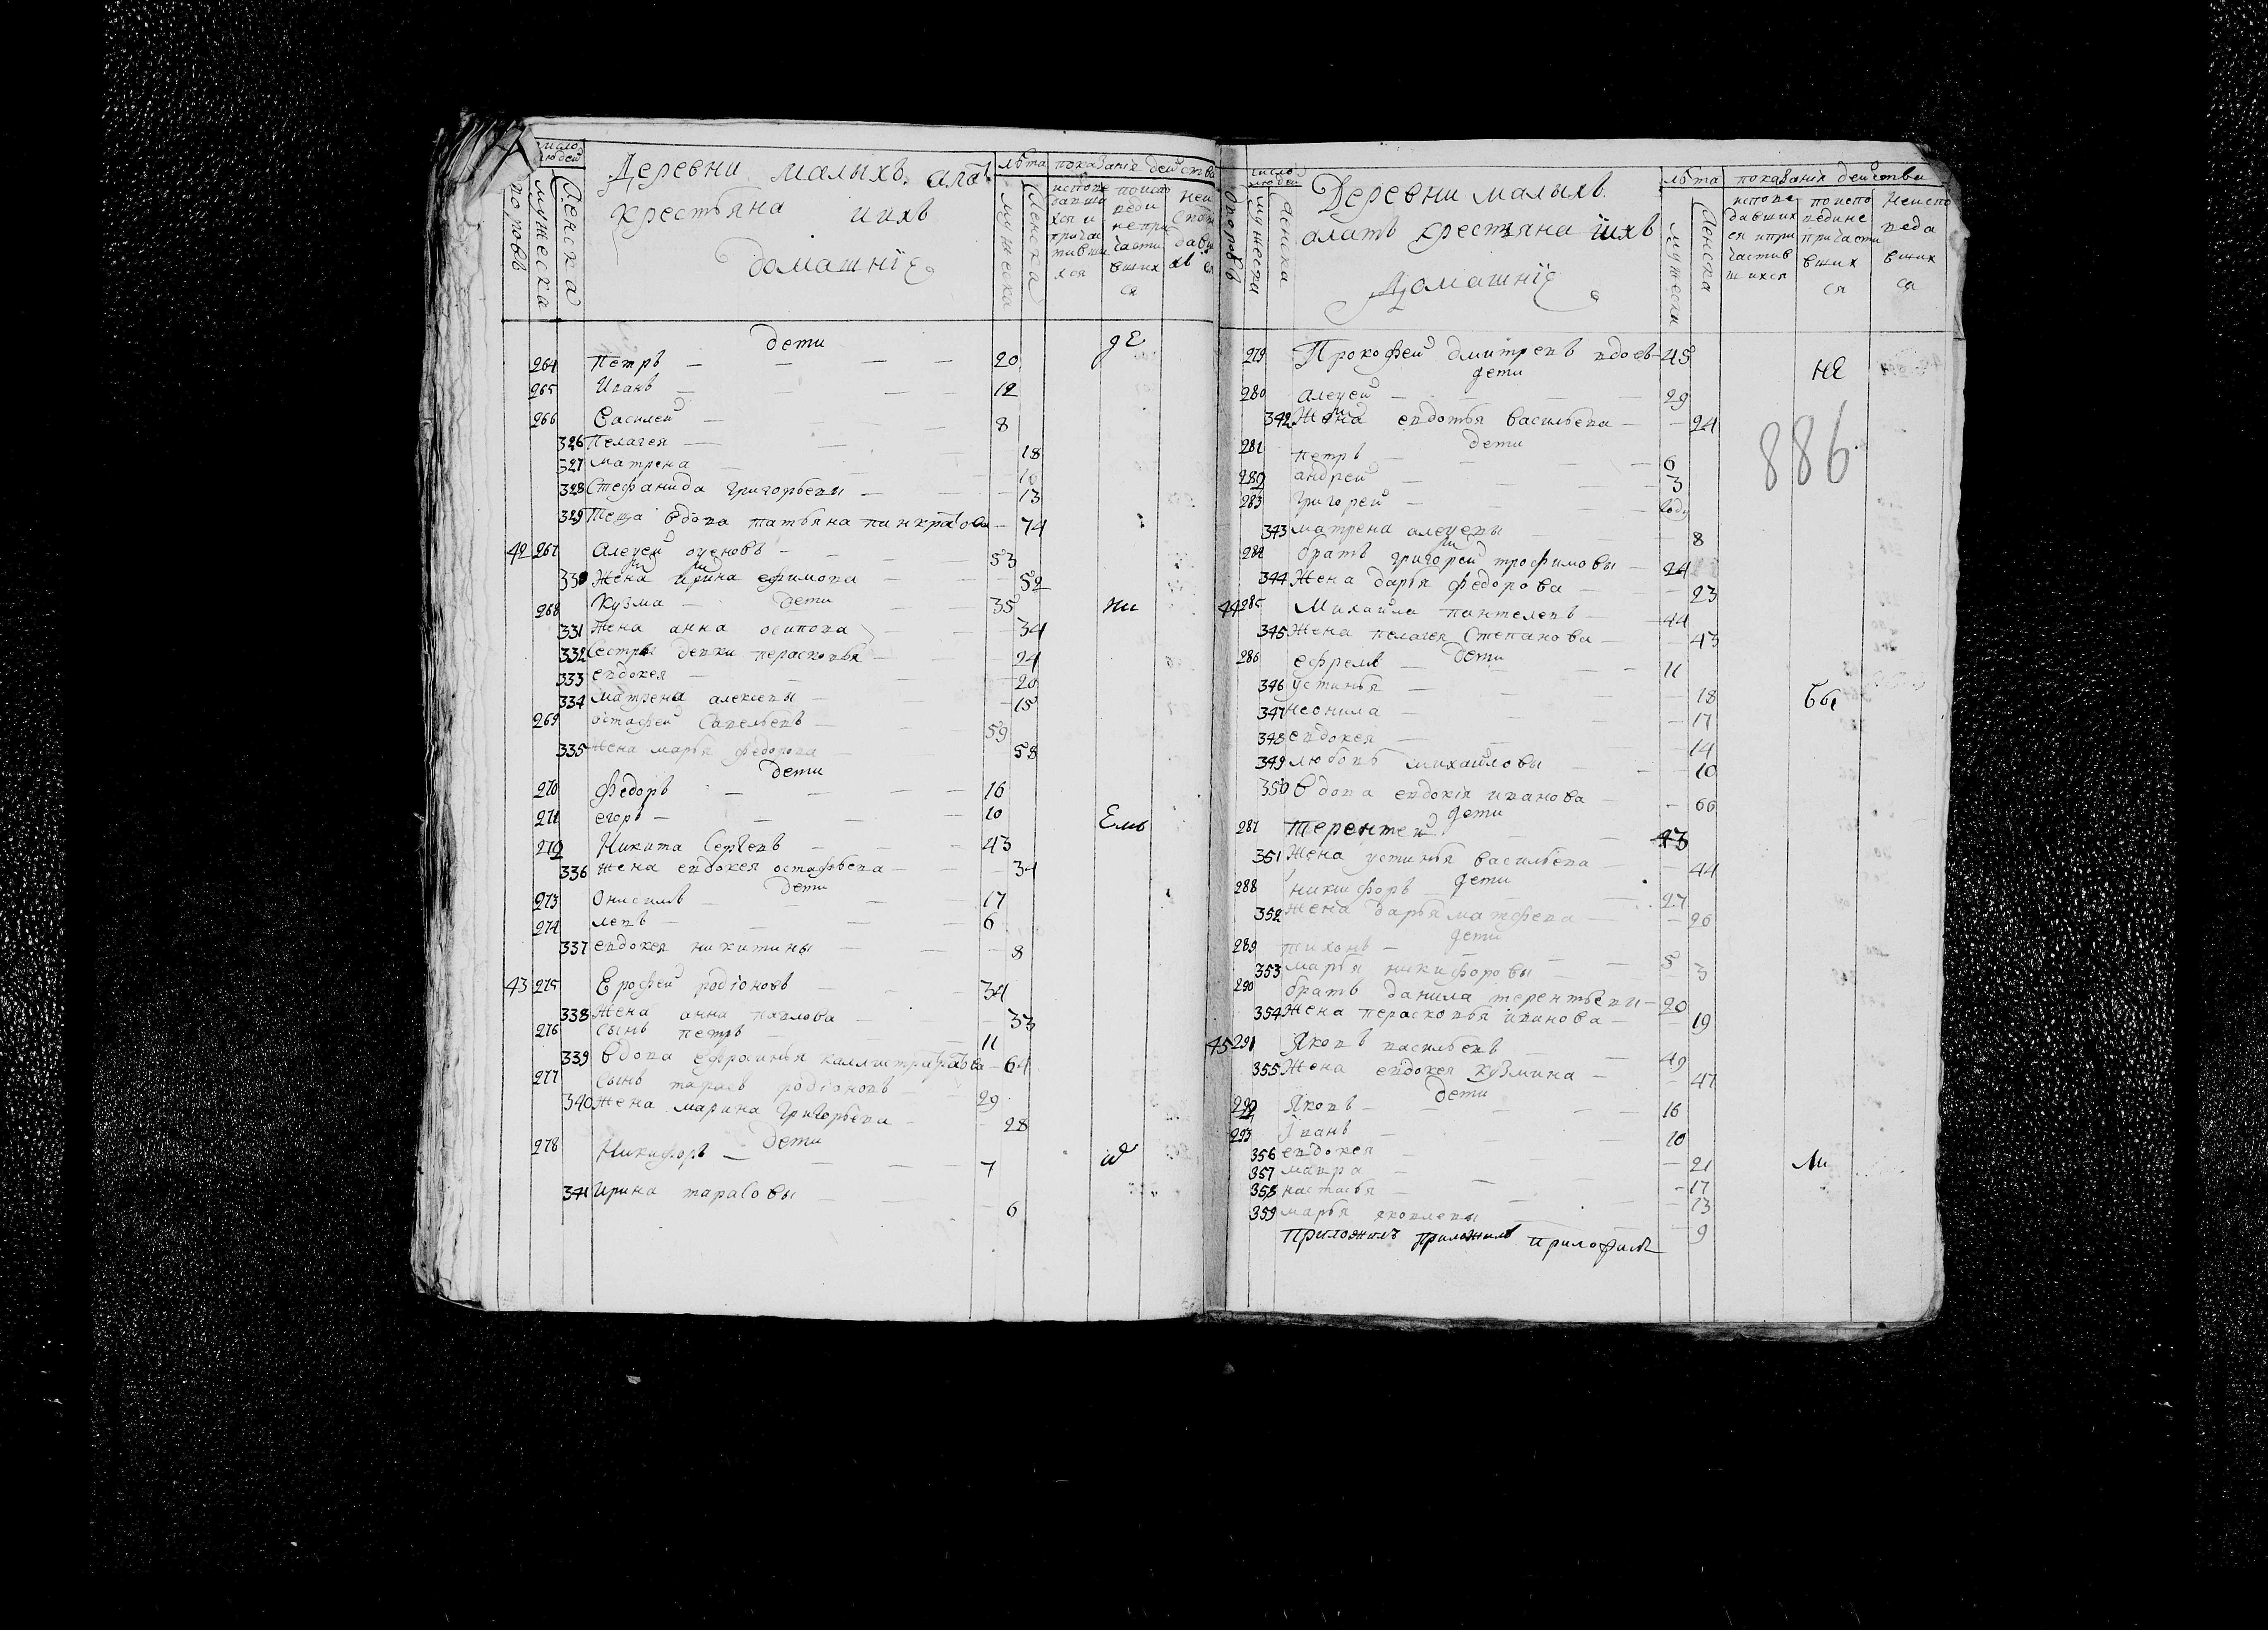 число людей
Деревни малыхъ алат
лѣта показаніе действа
дворовъ
мужеска
женска
крестьяна ихъ
домашніе
мужеска
женска
дети
де
264 Петръ 20
265 Иванъ 12
266 Василей 8
326 Пелагея 18
327 матрена
328 Стефанида григорьевы 13
329 Теща вдова татьяна панкратова 74
42 267 Алексей 53
330 Жена ирина ефимова 52
дети
268 Кузма 35
331 Жена анна осипова 34
332 Сестры девки перасковья 24
333 евдокея 20
334 матрена алексевы 15
269 остафей Савельевъ 59
335 Жена марья федорова 58
дети
270 Федоръ 16
271 егоръ 10
Емъ
272 Никита Сергевъ 43
336 жена евдокея остафьева 34
дети
273 Онисимъ 17
274 левъ 6
337 евдокея никитины 8
43 275 Ерофей родіоновъ 34
338 Жена анна павлова 33
276 сынъ петръ 11
339 Вдова ефросинья каллистратова 64
277 Сынъ тарасъ родіоновъ 29
340 Жена марина григорьева 28
дети
278 Никифоръ 7
341 Ирина тарасовы 6
число людей
Деревни малыхъ
лѣта показанія действа
дворовъ
мужески
женски
алатъ крестьяна ихъ
Домашніе
мужески
женска
исповедавшихся и причастившихся
по исповеди не причастившихся
Неисповедавшихся
279 Прокофей дмитревъ вдовъ 45
дети
не
280 алексей 29
342 Жена евдотья Васильева 24
886
дети
281 петръ 6
282 андрей 3
283 григорей году
343 матрена алексевы 8
284 братъ григорей трофимовы 24
344 Жена дарья федорова 23
44 285 Михайла пантелевъ 44
345 Жена пелагея Степанова 43
дети
286 ефремъ 11
346 устинья 18
347 неонила 17
348 евдокея 14
349 любовь михайловы 10
350 Вдова евдокія иванова 66
дети
287 терентей 43
351 Жена устинья васильева 44
дети
288 никифоръ 27
352 Жена дарья матфева 26
дети
289 тихонъ 5
353 марья никифоровы 3
290 братъ данила терентьевы 20
354 Жена перасковья иванова 19
45 291 Яковъ васильевъ 49
355 Жена евдокея кузмина 47
дети
292 Яковъ 16
293 Іванъ 10
356 евдокея 21
357 мавра 17
358 настасья 13
359 марья яковлевы 9
приложилъ приложилъ приложилъ